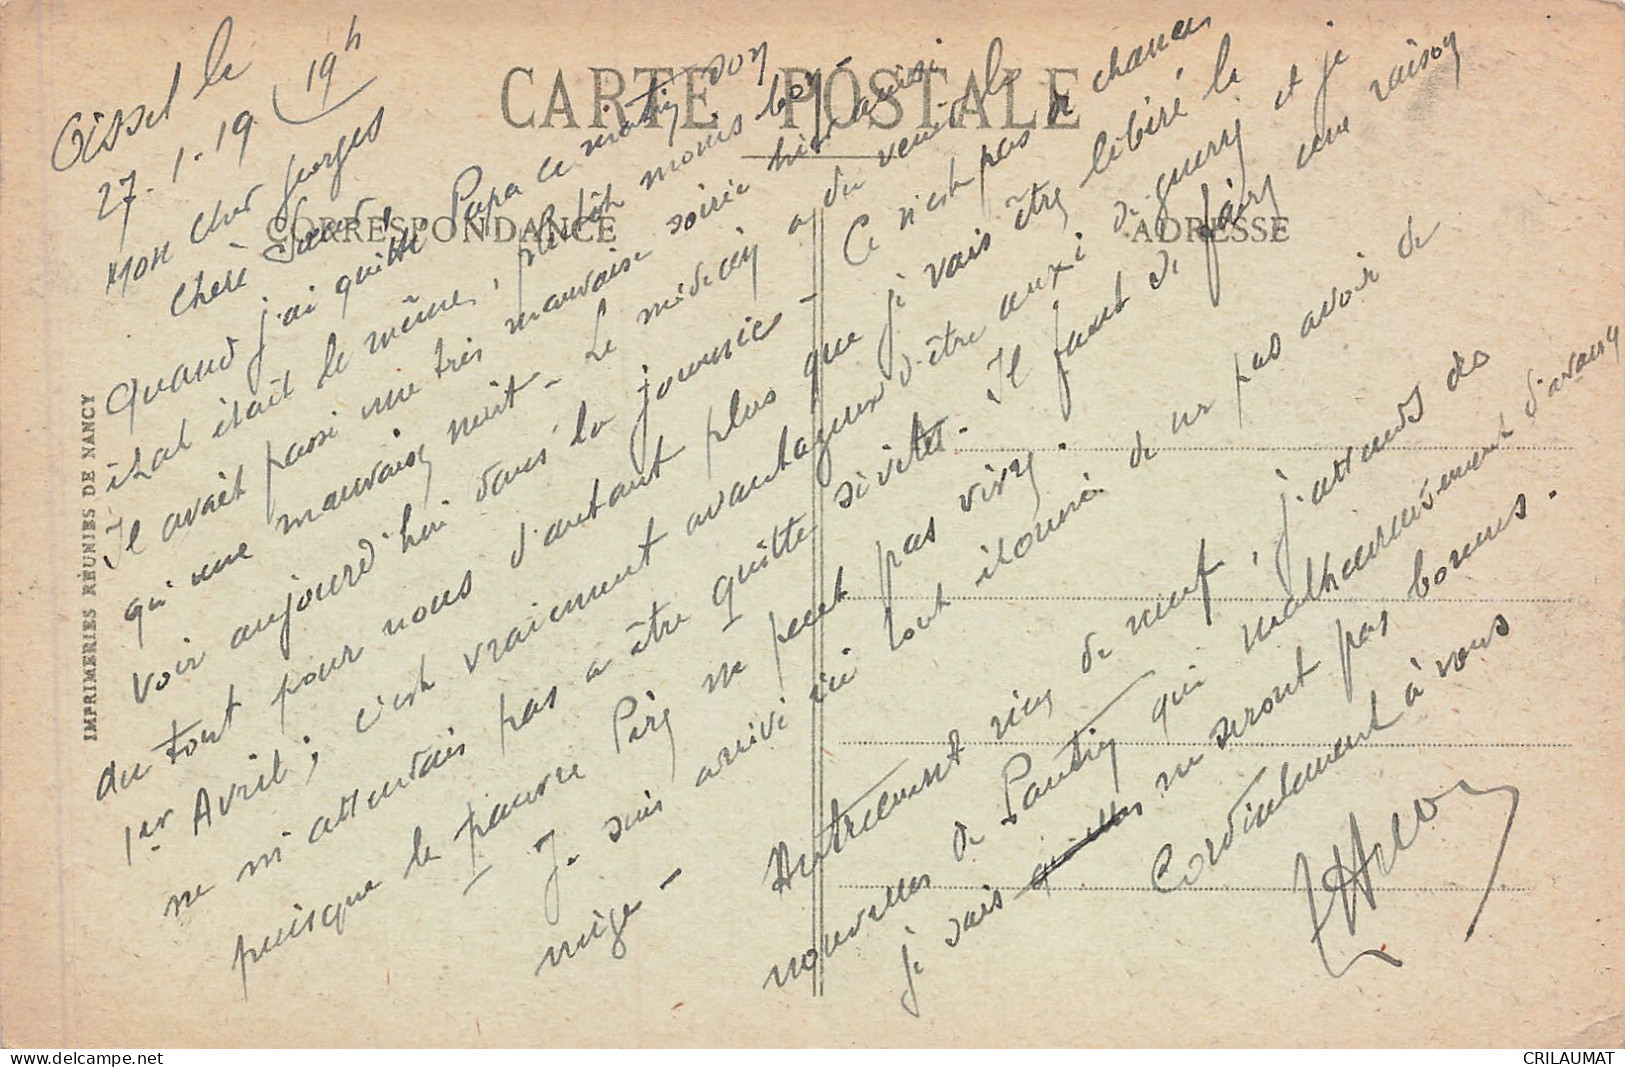 CARTE POSTALE
CORRESPONDANCE
ADRESSE
IMPRIMERIES RÉUNIES DE NANCY
Oissel le
27.1.19 19h
Mon cher Georges
Chère Soeur,
Quand j'ai quitté Papa ce matin son
état était le même, plutôt moins bon
Il avait passé une très mauvaise soirée hier ainsi
qu'une mauvaise nuit - Le médecin a du venir le
voir aujourd'hui dans la journée - Ce n'est pas de chances
du tout pour nous d'autant plus que je vais être libéré le
1er Avril ; c'est vraiment avantageux d'être auxi de guerre et je
ne m'attendais pas à être quitte si vite. Il faut se faire une raison
puisque le pauvre Père ne peut pas vivre.
Je suis arrivé ici tout étonné de ne pas avoir de
neige -
Autrement rien de neuf, j'attends des
nouvelles de Pantin qui malheureusement d'avance
je sais ne seront pas bonnes.
Cordialement à vous
CRILAUMAT
www.delcampe.net